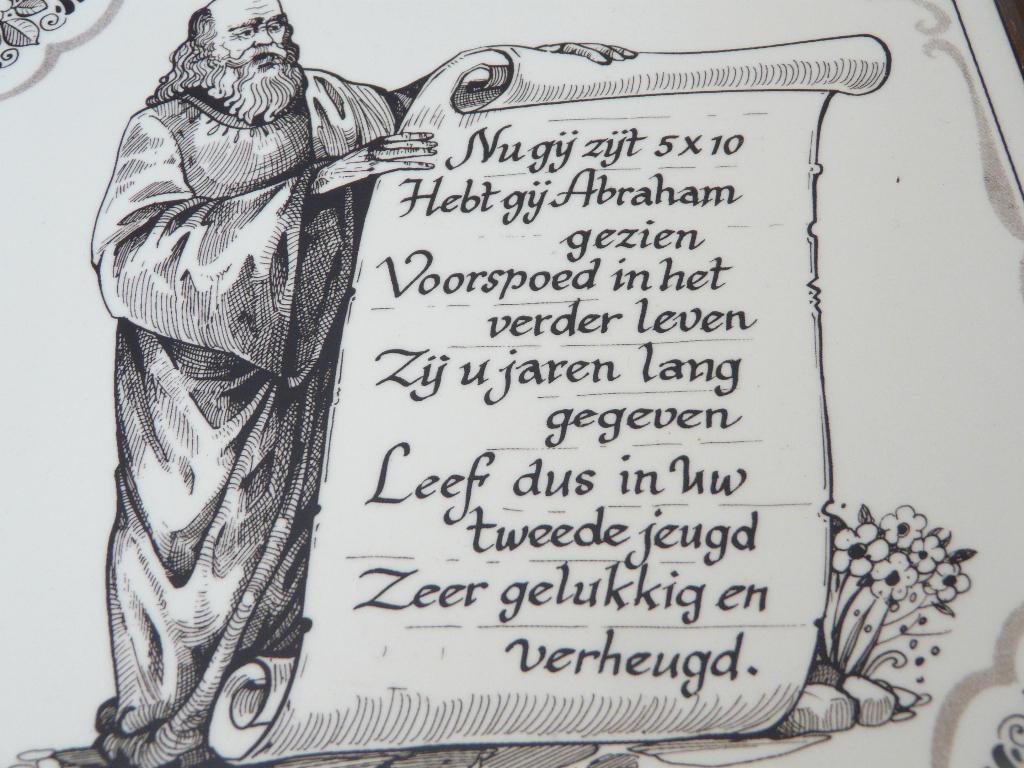 Nu gij zijt 5 x 10
Hebt gij Abraham
gezien
Voorspoed in het
verder leven
Zij u jaren lang
gegeven
Leef dus in Uw
tweede jeugd
Zeer gelukkig en
verheugd.